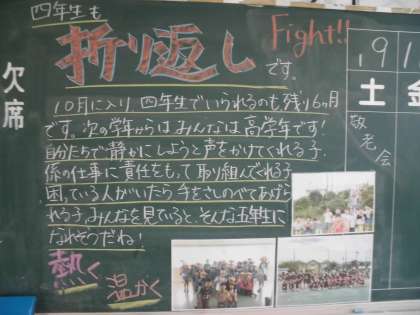 四年生も
折り返し
です。
Fight!!
10月に入り、四年生でいられるのも、残り6ヵ月
です。次の学年からはみんなは高学年です！
自分たちで静かにしようと声をかけてくれる子、
係の仕事に責任をもって取り組んでくれる子
困っている人がいたら手をさしのべてあげら
れる子。みんなを見ていると、そんな五年生に
なれそうだね！
熱く
温かく
欠席
19
土
金
敬老会